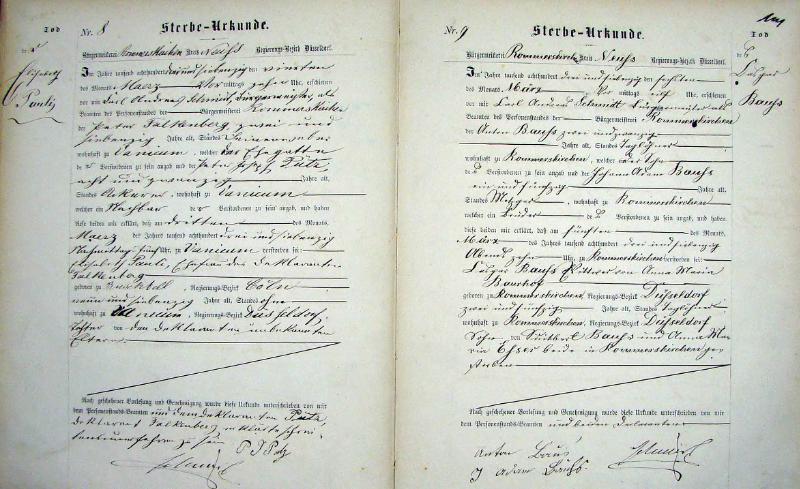 Tod
Nr. 8 Sterbe-Urkunde.
der
Elisabeth
Pauli
Bürgermeisterei Rommerskirchen Kreis Neuss Regierungs-Bezirk Düsseldorf.
Im Jahre tausend achthundert drei und siebenzig den vierten
des Monats Maerz Vor mittags zehn Uhr, erschienen
vor mir Carl Andreas Schmidt, Bürgermeister als
Beamten des Personenstandes der Bürgermeisterei Rommerskirchen
der Peter Falkenberg zwei und
siebenzig Jahre alt, Standes
wohnhaft zu Vanicum, welcher der Ehegatte
de r Verstorbenen zu sein angab und der Peter Josef Pütz
acht und zwanzig Jahre alt,
Standes Ackerer, wohnhaft zu Vanicum
welcher ein Nachbar der Verstorbenen zu sein angab, und haben
diese beiden mir erklärt, daß am dritten des Monats
Maerz des Jahres tausend achthundert drei und siebenzig
Nachmittags fünf Uhr, zu Vanicum verstorben sei:
Elisabeth Pauli, Ehefrau des Deklaranten
Falkenberg
geboren zu Regierungs-Bezirk Cöln
neun und siebenzig Jahre alt, Standes ohne
wohnhaft zu Vanicum, Regierungs-Bezirk Düsseldorf,
Tochter von den Deklaranten unbekannten
Eltern
Nach geschehener Vorlesung und Genehmigung wurde diese Urkunde unterschrieben von mir
dem Personenstands-Beamten und dem Deklaranten Pütz
Deklarant Falkenberg erklärte schreibensunerfahren zu sein
P J Pütz
Schmidt
Tod
Nr. 9 Sterbe-Urkunde.
des
Caspar
Bauss
Bürgermeisterei Rommerskirchen Kreis Neuss Regierungs-Bezirk Düsseldorf.
Im Jahre tausend achthundert drei und siebenzig den sechsten
des Monats März Vor mittags elf Uhr, erschienen
vor mir Carl Andreas Schmidt Bürgermeister als
Beamten des Personenstandes der Bürgermeisterei Rommerskirchen
der Anton Bauss zwei und zwanzig
Jahre alt, Standes Taglöhner
wohnhaft zu Rommerskirchen, welcher der Sohn
des Verstorbenen zu sein angab und der Johann Adam Bauss
ein und fünfzig Jahre alt,
Standes Metzger, wohnhaft zu Rommerskirchen
welcher ein Bruder des Verstorbenen zu sein angab, und haben
diese beiden mir erklärt, daß am fünften des Monats
März des Jahres tausend achthundert drei und siebenzig
Abends zehn Uhr, zu Rommerskirchen verstorben sei:
Caspar Bauss Wittwer von Anna Maria
Baurhof
geboren zu Rommerskirchen, Regierungs-Bezirk Düsseldorf
zwei und fünfzig Jahre alt, Standes Taglöhner
wohnhaft zu Rommerskirchen, Regierungs-Bezirk Düsseldorf
Sohn von Suitbert Bauss und Anna Ma
ria Esser beide in Rommerskirchen ge
storben
Nach geschehener Vorlesung und Genehmigung wurde diese Urkunde unterschrieben von mir
dem Personenstands-Beamten und beiden Deklaranten
Anton Bauss
J Adam Bauss
Schmidt